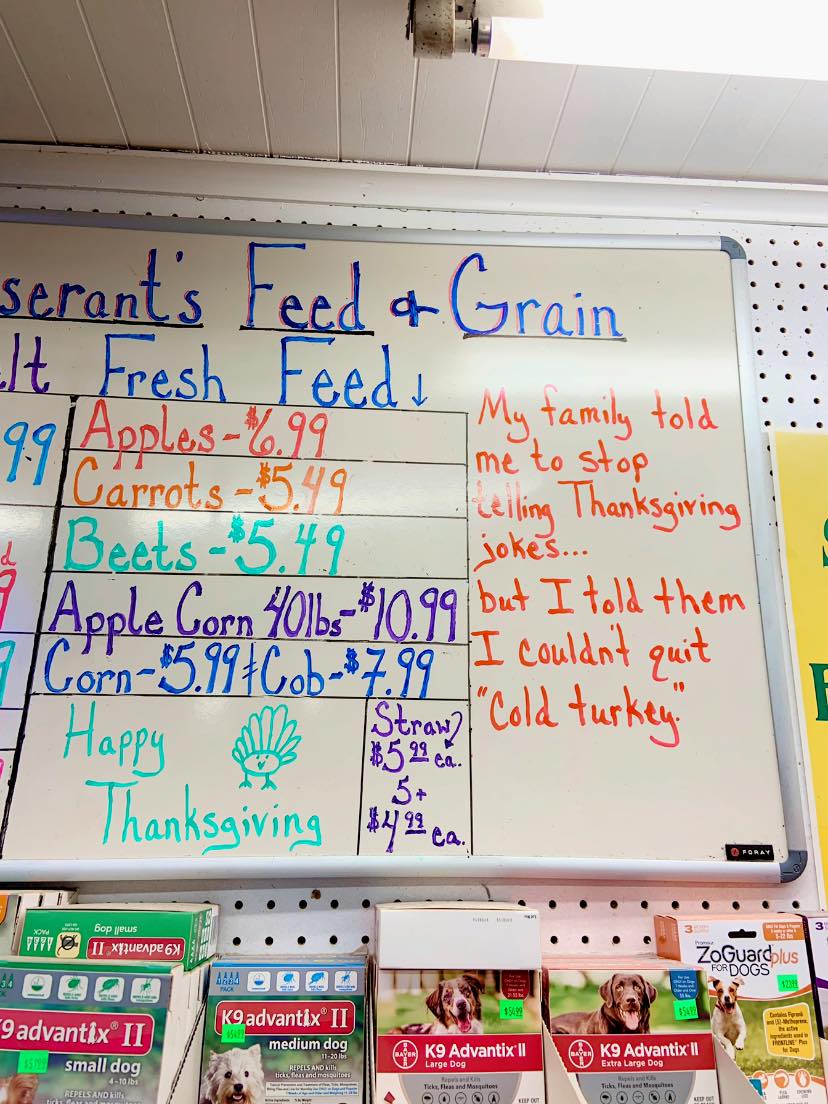 serant's Feed & Grain
lt Fresh Feed↓
99
Apples - $6.99
Carrots - $5.49
Beets - $5.49
Apple Corn 40lbs - $10.99
Corn - $5.99 Cob - $7.99
Happy
Thanksgiving
Straw
$5.99 ea.
5+
$4.99 ea.
My family told
me to stop
telling Thanksgiving
jokes...
but I told them
I couldn't quit
"Cold turkey."
FORAY
K9 advantix® II
small dog
K9 advantix® II
small dog
4-10 lbs
REPELS AND KILLS
ticks, fleas and mosquitoes
PACK
K9 advantix® II
medium dog
11-20 lbs
REPELS AND KILLS
ticks, fleas and mosquitoes
$54.99
BAYER
K9 Advantix® II
Large Dog
Repels and Kills
Ticks, Fleas and Mosquitoes
KEEP OUT
BAYER
K9 Advantix® II
Extra Large Dog
Repels and Kills
Ticks, Fleas and Mosquitoes
KEEP OUT
3
ZoGuard plus
FOR DOGS
Contains Fipronil
and (S)-Methoprene,
the active
ingredients used in
FRONTLINE® Plus
for Dogs
3